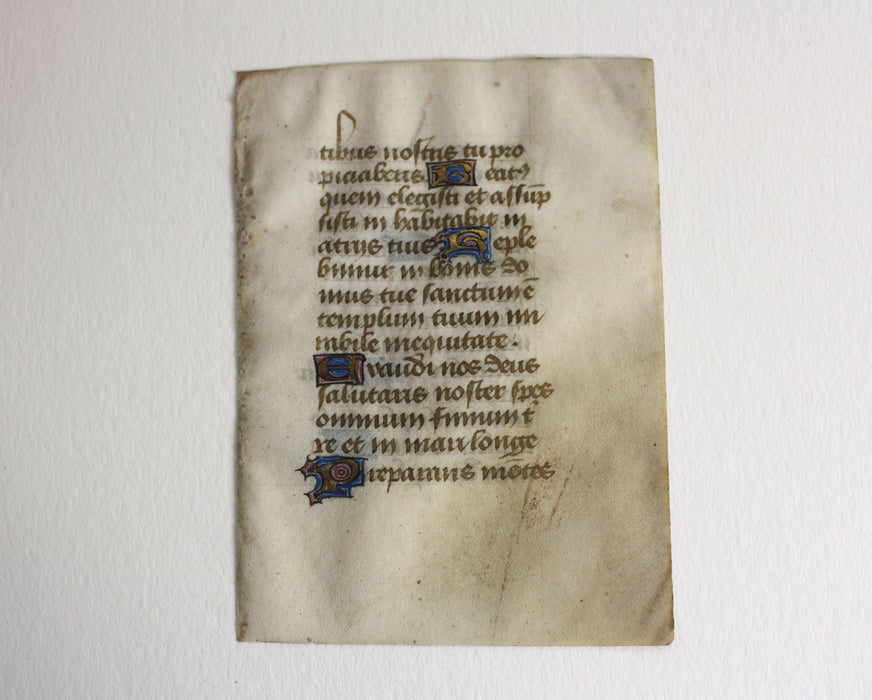 tibus nostris tu pro
piciaberis. Beatꝰ
quem elegisti et assūp
sisti in hābitabit in
atriis tuis. Reple
bimur in bonis do
mus tue sanctum ē
templum tuum mi
rabile in equitate.
Exaudi nos deus
salutaris noster spes
omnium finium t̄
re et in mari longe
Preparans mōtes